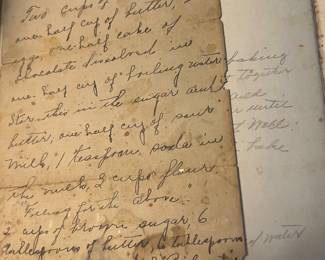 Two cups of
one half cup of butter,
eggs, one half cake of
chocolate dissolved in
one half cup of boiling water
Stir this in the sugar and
butter, one half cup of sour
milk, 1 teaspoon soda in
the milk, 2 cups flour.
Filling for the above.
2 cups of brown sugar, 6
tablespoons of butter, 6 tablespoons
baking
together
and
until
Bake
of water